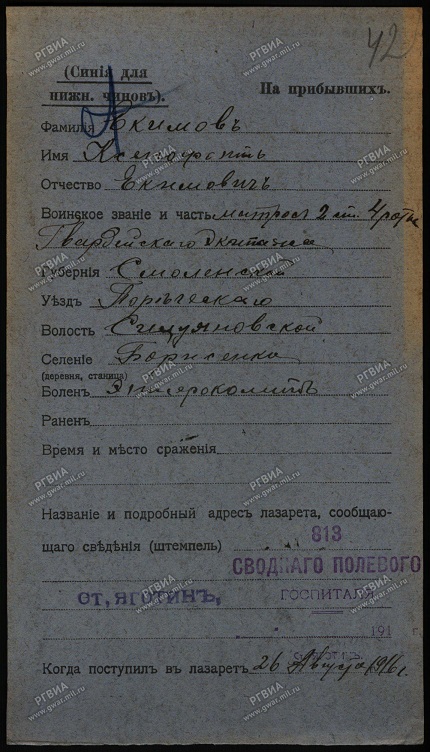 42
(Синія для
нижн. чиновъ).
На прибывшихъ.
Фамилія Якимовъ
Имя Ксенофонтъ
Отчество Екимовичъ
Воинское званіе и часть матросъ 2 ст. 4 роты
Гвардейскаго Экипажа
Губернія Смоленской
Уѣздъ Порѣчскаго
Волость
Селеніе Борисенки
(деревня, станица)
Боленъ Энтероколитъ
Раненъ
Время и мѣсто сраженія
Названіе и подробный адресъ лазарета, сообщаю-
щаго свѣдѣнія (штемпель)
813
СВОДНАГО ПОЛЕВОГО
ГОСПИТАЛЯ
СТ. ЯГОТИНЪ,
191 г.
Когда поступилъ въ лазаретъ 26 Августа 1916 г.
РГВИА
www.gwar.mil.ru